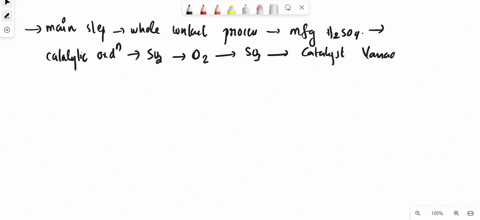 → main step → whole contact process → mfg H₂SO₄. →
catalytic oxdⁿ → SO₂ → O₂ → SO₃ → Catalyst Vanad
100%